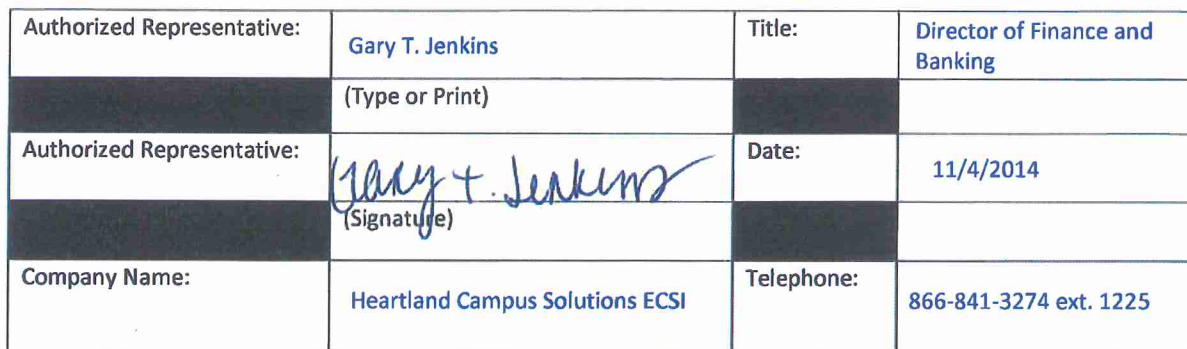 Authorized Representative:
Gary T. Jenkins
Title:
Director of Finance and
Banking
(Type or Print)
Authorized Representative:
Gary T. Jenkins
Date:
11/4/2014
(Signature)
Company Name:
Heartland Campus Solutions ECSI
Telephone:
866-841-3274 ext. 1225